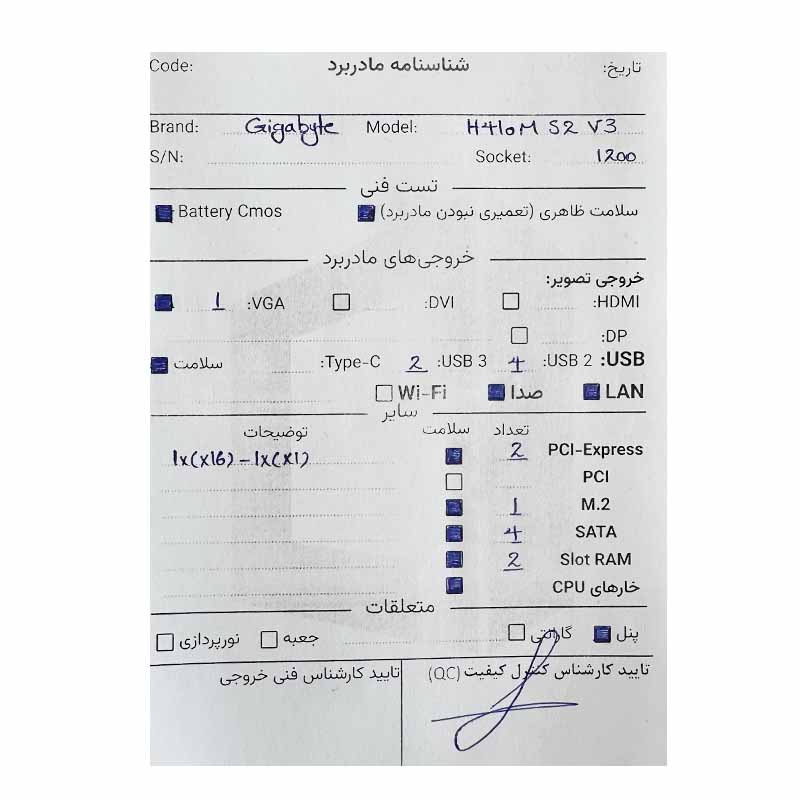 Code: شناسنامه مادربرد تاریخ:
Brand: Gigabyte Model: H410M S2 V3
S/N: Socket: 1200
تست فنی
سلامت ظاهری (تعمیری نبودن مادربرد) Battery Cmos
خروجی‌های مادربرد
خروجی تصویر:
HDMI: DVI: VGA: 1
DP:
USB: USB 2: 4 USB 3: 2 Type-C: سلامت
LAN صدا Wi-Fi
سایر
تعداد سلامت توضیحات
PCI-Express 2 1x(x16) - 1x(x1)
PCI
M.2 1
SATA 4
Slot RAM 2
خارهای CPU
متعلقات
پنل گارانتی جعبه نورپردازی
تایید کارشناس کنترل کیفیت (QC) تایید کارشناس فنی خروجی